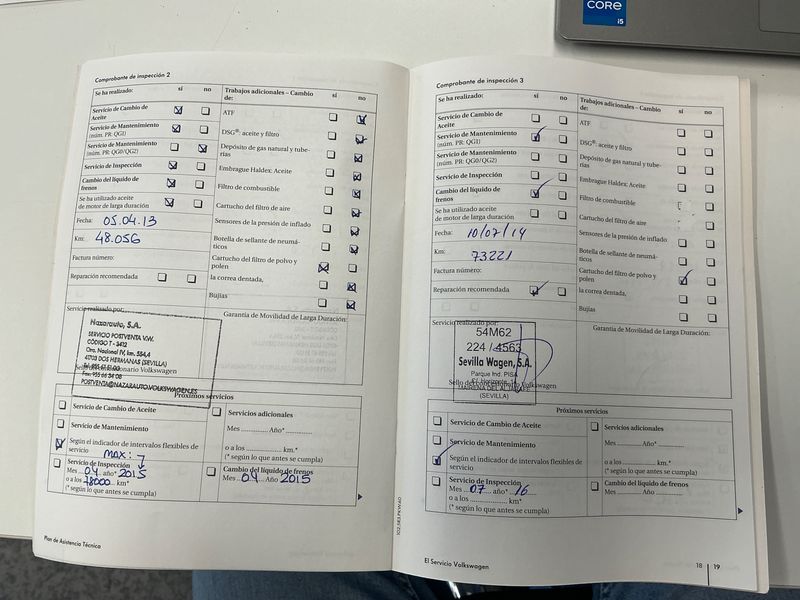 CORE
i5
Comprobante de inspección 2
Se ha realizado: sí no
Servicio de Cambio de
Aceite
Servicio de Mantenimiento
(núm. PR: QG1)
Servicio de Mantenimiento
(núm. PR: QG0/QG2)
Servicio de Inspección
Cambio del líquido de
frenos
Se ha utilizado aceite
de motor de larga duración
Fecha: 05.04.13
Km: 48.056
Factura número:
Reparación recomendada
Trabajos adicionales – Cambio
de: sí no
ATF
DSG®: aceite y filtro
Depósito de gas natural y tube-
rías
Embrague Haldex: Aceite
Filtro de combustible
Cartucho del filtro de aire
Sensores de la presión de inflado
Botella de sellante de neumá-
ticos
Cartucho del filtro de polvo y
polen
la correa dentada,
Bujías
Servicio realizado por:
Garantía de Movilidad de Larga Duración:
Nazarauto, S.A.
SERVICIO POSTVENTA V.W.
CÓDIGO T - 3412
Ctra. Nacional IV, km. 554,4
41703 DOS HERMANAS (SEVILLA)
POSTVENTA@NAZARAUTO.VOLKSWAGEN.ES
Próximos servicios
Servicio de Cambio de Aceite
Servicio de Mantenimiento
Según el indicador de intervalos flexibles de
servicio
MAX: 7
Servicio de Inspección
Mes 04 año* 2015
o a los 78000 km*
(* según lo que antes se cumpla)
Servicios adicionales
Mes Año*
o a los km.*
(* según lo que antes se cumpla)
Cambio del líquido de frenos
Mes 04 Año 2015
Plan de Asistencia Técnica
Comprobante de inspección 3
Se ha realizado: sí no
Servicio de Cambio de
Aceite
Servicio de Mantenimiento
(núm. PR: QG1)
Servicio de Mantenimiento
(núm. PR: QG0/QG2)
Servicio de Inspección
Cambio del líquido de
frenos
Se ha utilizado aceite
de motor de larga duración
Fecha: 10/07/14
Km: 73221
Factura número:
Reparación recomendada
Trabajos adicionales – Cambio
de: sí no
ATF
DSG®: aceite y filtro
Depósito de gas natural y tube-
rías
Embrague Haldex: Aceite
Filtro de combustible
Cartucho del filtro de aire
Sensores de la presión de inflado
Botella de sellante de neumá-
ticos
Cartucho del filtro de polvo y
polen
la correa dentada,
Bujías
Servicio realizado por:
Garantía de Movilidad de Larga Duración:
54M62
224 / 4563
Sevilla Wagen, S.A.
Parque Ind. PISA
MAIRENA DEL ALJARAFE
(SEVILLA)
Próximos servicios
Servicio de Cambio de Aceite
Servicio de Mantenimiento
Según el indicador de intervalos flexibles de
servicio
Servicio de Inspección
Mes 07 año* 16
o a los km*
(* según lo que antes se cumpla)
Servicios adicionales
Mes Año*
o a los km.*
(* según lo que antes se cumpla)
Cambio del líquido de frenos
Mes Año
El Servicio Volkswagen
18 | 19